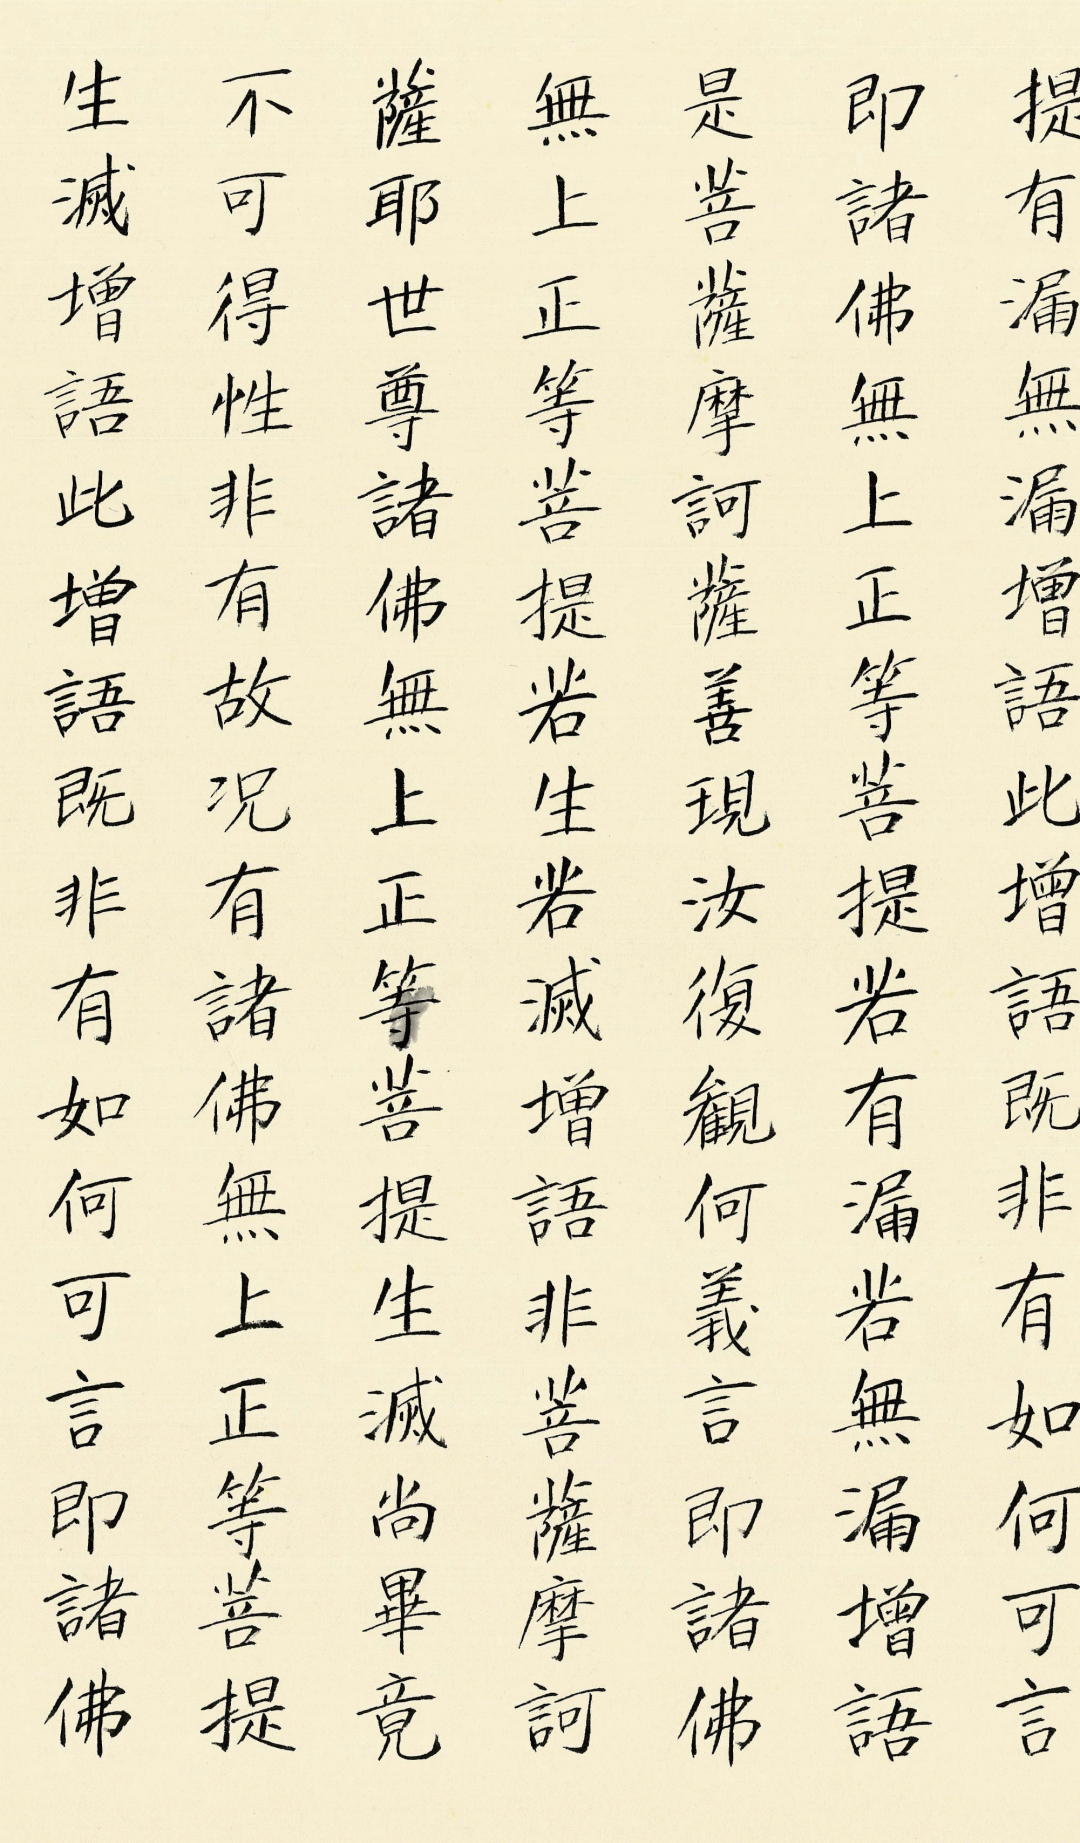 提有漏無漏增語此增語既非有如何可言
即諸佛無上正等菩提若有漏若無漏增語
是菩薩摩訶薩善現汝復觀何義言即諸佛
無上正等菩提若生若滅增語非菩薩摩訶
薩耶世尊諸佛無上正等菩提生滅尚畢竟
不可得性非有故况有諸佛無上正等菩提
生滅增語此增語既非有如何可言即諸佛